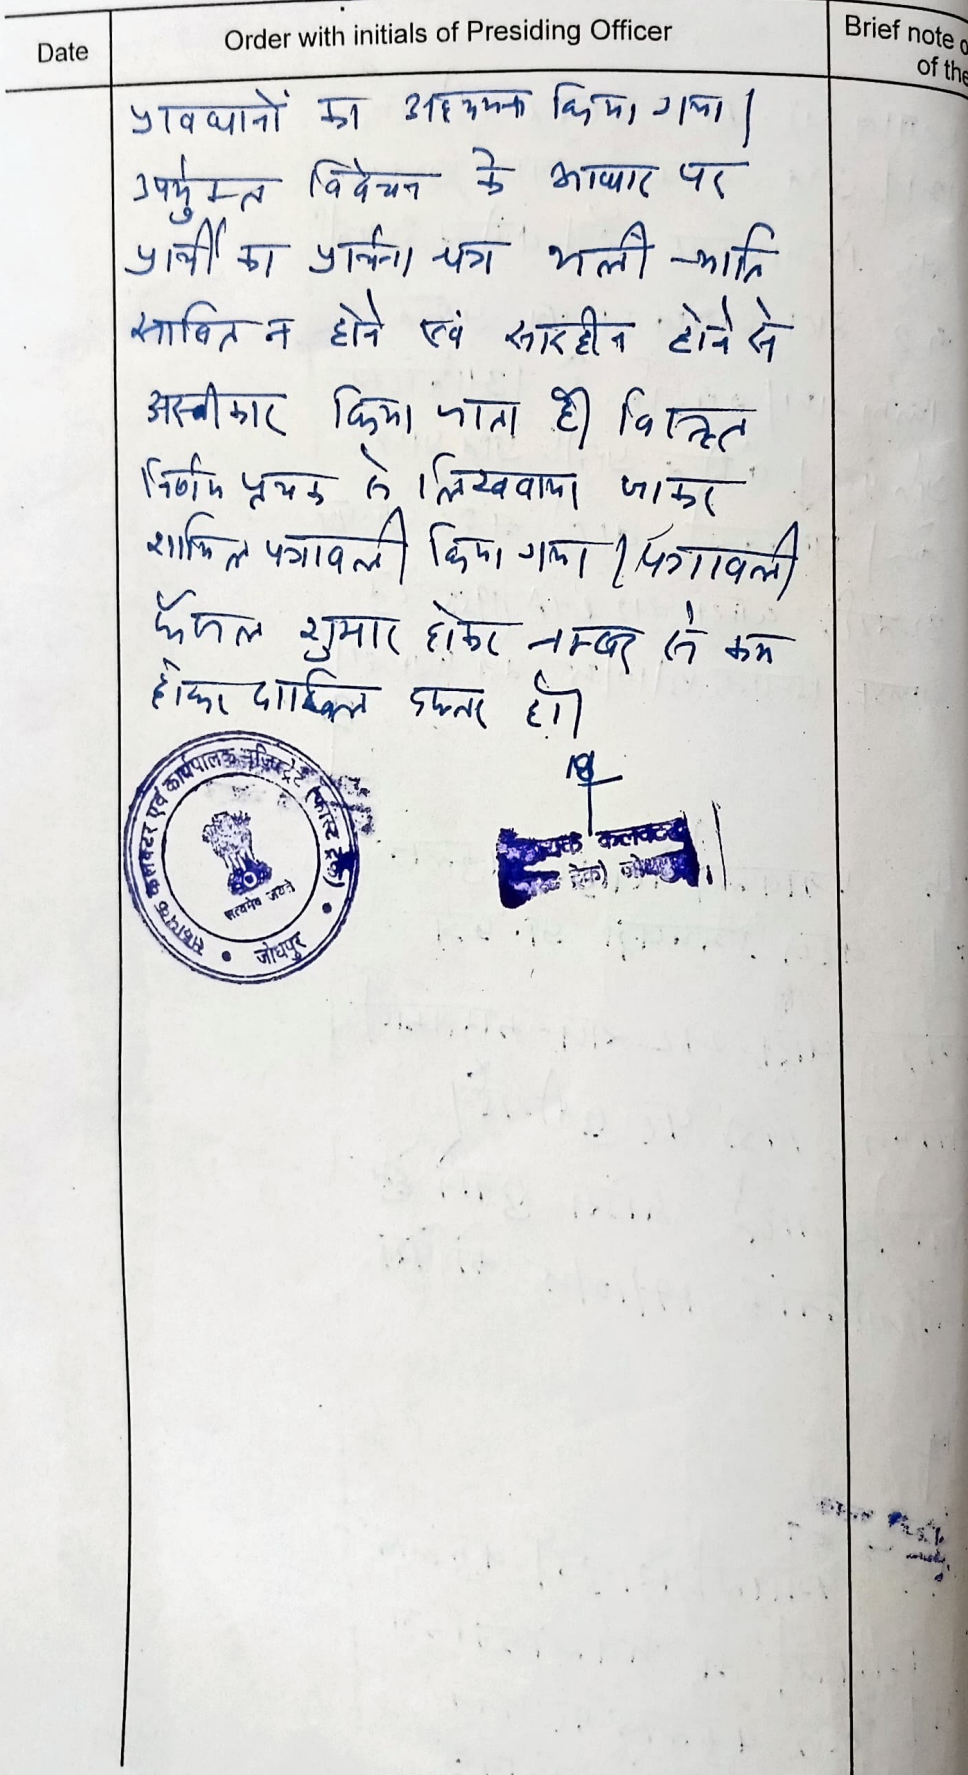 Date
Order with initials of Presiding Officer
Brief note o
of the
प्रावधानों का अध्ययन किया गया।
उपर्युक्त विवेचन के आधार पर
प्रार्थी का प्रार्थना पत्र भली भांति
साबित न होने एवं सारहीन होने से
अस्वीकार किया जाता है। विस्तृत
निर्णय पृथक से लिखवाया जाकर
शामिल पत्रावली किया गया। पत्रावली
फैसल शुमार होकर नम्बर से कम
होकर दाखिल दफ्तर हो।
सहायक कलक्टर एवं कार्यपालक मजिस्ट्रेट (फास्ट ट्रेक)
सत्यमेव जयते
जोधपुर
कलक्टर